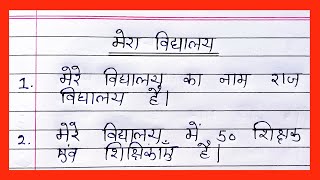 मेरा विद्यालय
1. मेरे विद्यालय का नाम राज
विद्यालय है।
2. मेरे विद्यालय में 50 शिक्षक
एंव शिक्षिकाएँ है।